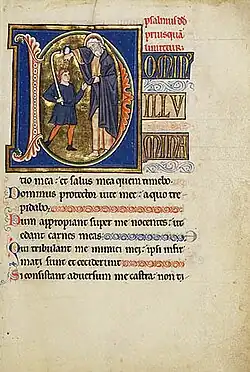 psalmus dd
priusquā
liniretur.
DOMIN'
ILLV
MINA
tio mea: et salus mea quem timebo.
Dominus protector uite mee: a quo tre
pidabo.
Dum appropiant super me nocentes: ut
edant carnes meas.
Qui tribulant me inimici mei: ipsi infir
mati sunt et ceciderunt.
Si consistant aduersum me castra: non ti